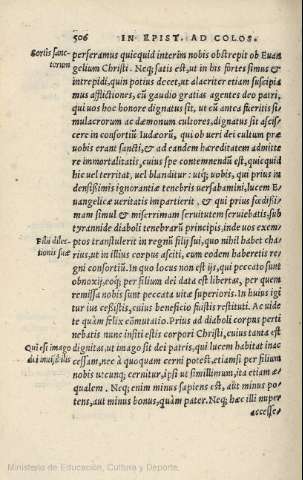 506 IN EPIST. AD COLOS.
Sortis sanctorum
perferamus quicquid interim nobis obstrepit ob Euan
gelium Christi. Neq; satis est, ut in his fortes simus &
intrepidi, quin potius decet, ut alacriter etiam suscipia
mus afflictiones, cũ gaudio gratias agentes deo patri,
qui uos hoc honore dignatus sit, ut cũ antea fueritis si
mulacrorum ac dæmonum cultores, dignatus sit ascis⸗
cere in consortiũ Iudæorũ, qui ob ueri dei cultum præ
uobis erant sancti, & ad eandem hæreditatem admitte
re immortalitatis, cuius spe contemnendũ est, quicquid
hic uel territat, uel blanditur: utiq; uobis, qui prius in
densissimis ignorantiæ tenebris uersabamini, lucem E⸗
uangelicæ ueritatis impartierit, & qui prius fœdissi⸗
mam simul & miserrimam seruitutem seruiebatis sub
tyrannide diaboli tenebrarũ principis, inde uos exem⸗
Filij dilectionis suæ
ptos transtulerit in regnũ filij sui, quo nihil habet cha⸗
rius, ut in illius corpus asciti, cum eodem haberetis re⸗
gni consortiũ. In quo locus non est ijs, qui peccato sunt
obnoxij, eoq; per filium dei data est libertas, per quem
remissa nobis sunt peccata uitæ superioris. In huius igi
tur ius cessistis, cuius beneficio fuistis restituti. Ac uide
te quàm felix cõmutatio. Prius ad diaboli corpus perti
nebatis nunc insiti estis corpori Christi, cuius tanta est
Qui est imago
dignitas, ut imago sit dei patris, qui lucem habitat inac
cessam, nec à quoquam cerni potest, etiamsi per filium
nobis utcunq; cernitur, ipsi ut simillimum, ita etiam æ⸗
qualem. Neq; enim minus sapiens est, aut minus po⸗
tens, aut minus bonus, quàm pater. Neq; hæc illi nuper
accesse⸗
Ministerio de Educación, Cultura y Deporte.